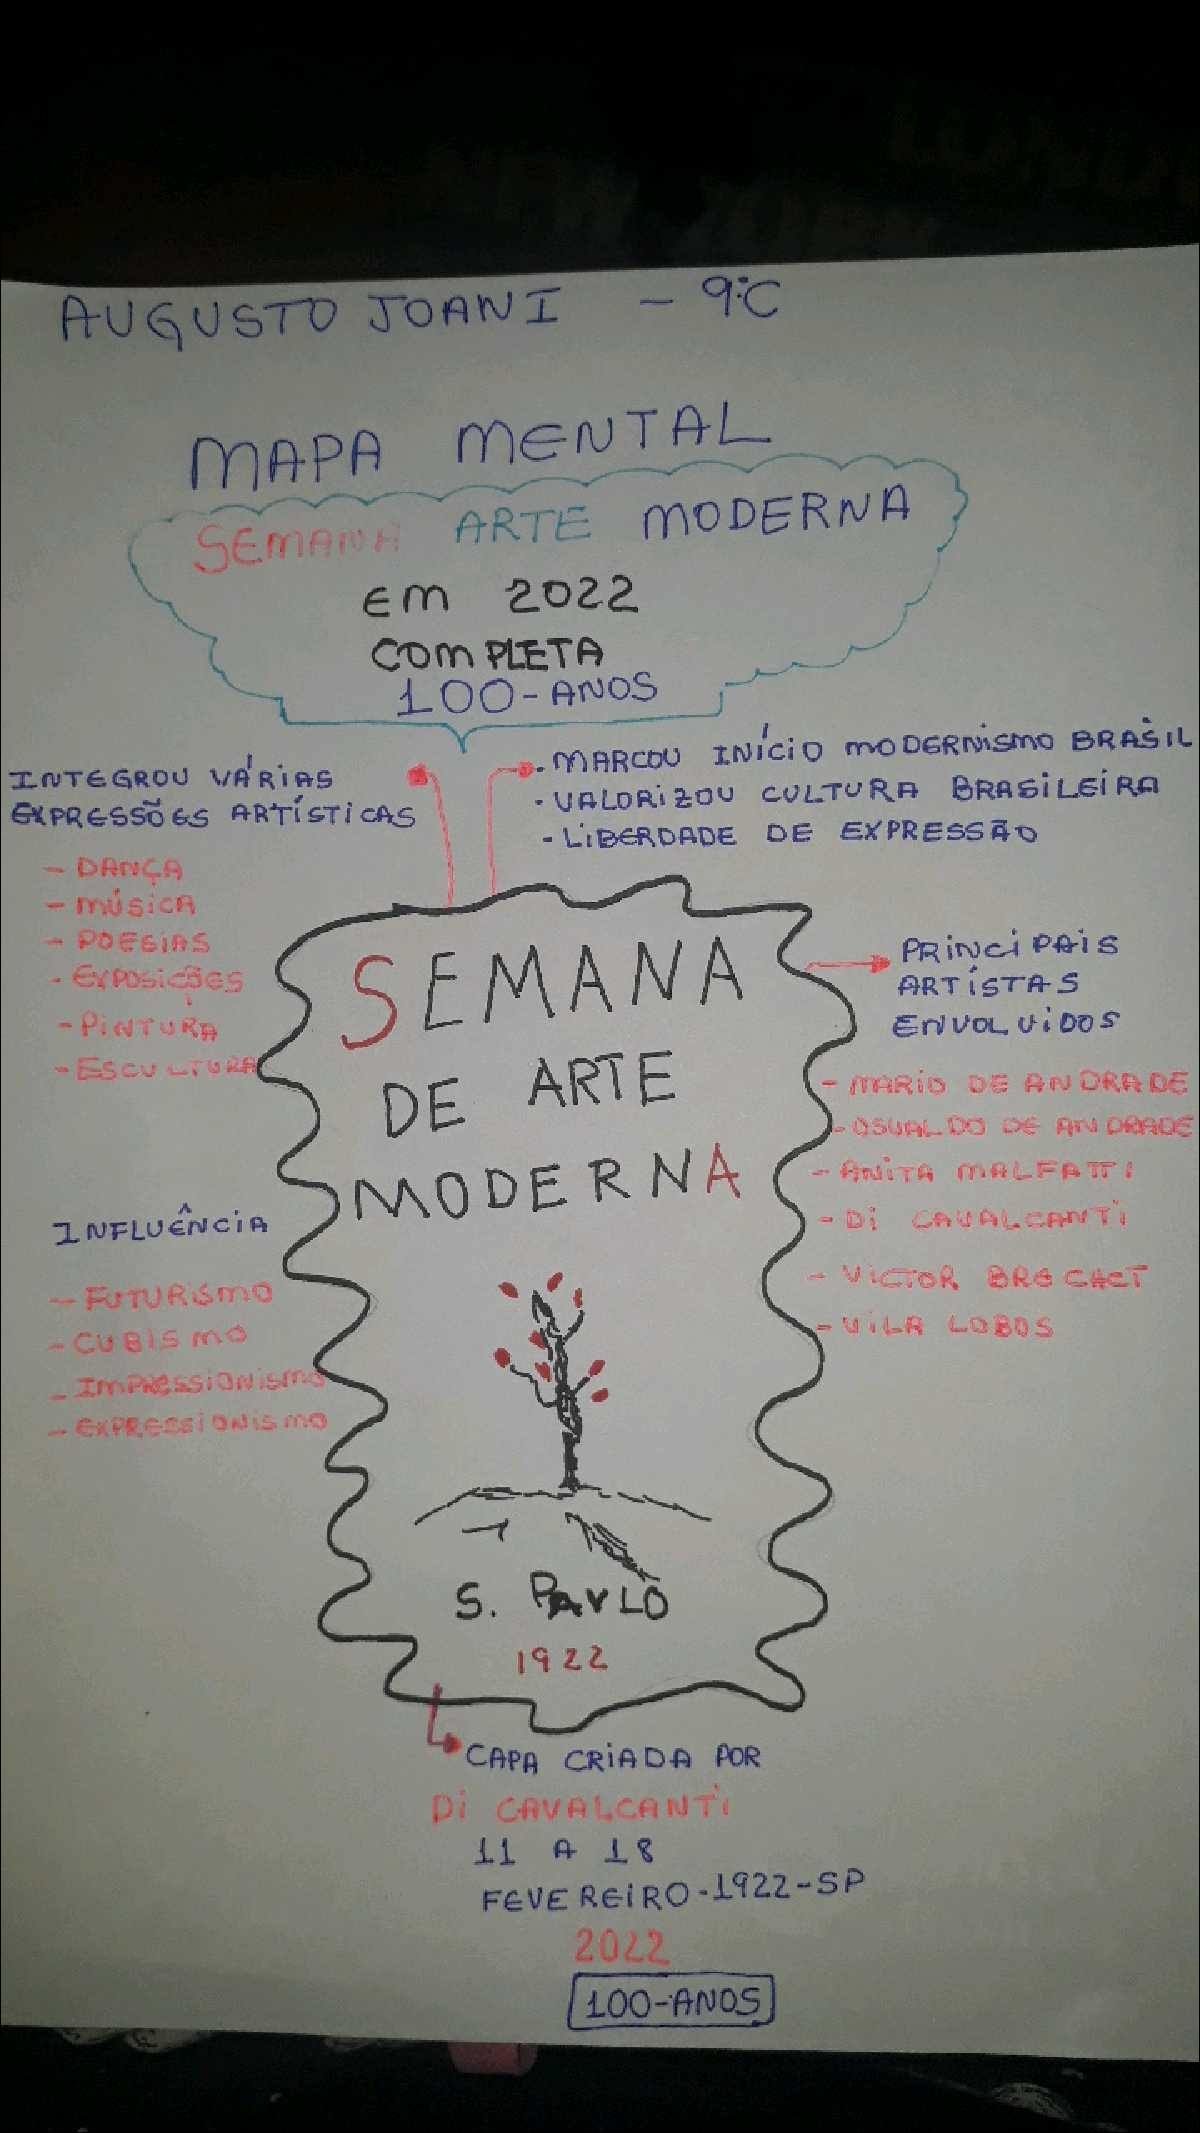 AUGUSTO JOANI - 9ºC
MAPA MENTAL
SEMANA ARTE MODERNA
EM 2022
COMPLETA
100-ANOS
INTEGROU VÁRIAS
EXPRESSÕES ARTÍSTICAS
- DANÇA
- MÚSICA
- POESIAS
- EXPOSIÇÕES
- PINTURA
- ESCULTURA
. MARCOU INÍCIO MODERNISMO BRASIL
. VALORIZOU CULTURA BRASILEIRA
- LIBERDADE DE EXPRESSÃO
PRINCIPAIS
ARTÍSTAS
ENVOLVIDOS
- MARIO DE ANDRADE
- OSUALDO DE ANDRADE
- ANITA MALFATTI
- DI CAVALCANTI
- VICTOR BRECHET
- VILA LOBOS
INFLUÊNCIA
- FUTURISMO
- CUBISMO
- IMPRESSIONISMO
- EXPRESSIONISMO
SEMANA
DE ARTE
MODERNA
S. PAVLO
1922
CAPA CRIADA POR
DI CAVALCANTI
11 A 18
FEVEREIRO-1922-SP
2022
100-ANOS